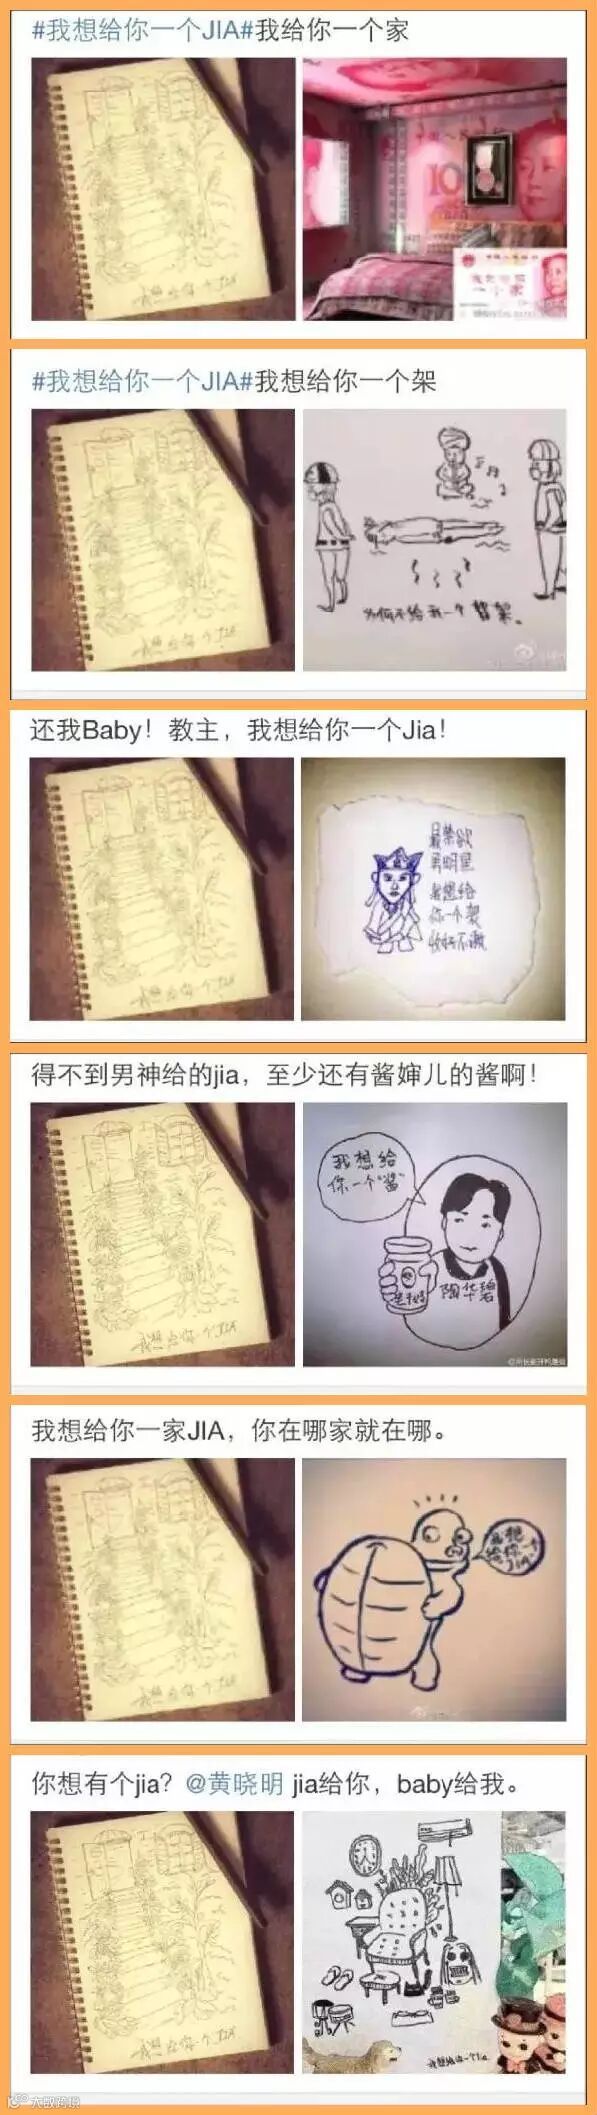 #我想给你一个JIA#我给你一个家
我想给你一个JIA
10
#我想给你一个JIA#我想给你一个架
我想给你一个JIA
为何不给我一个
架。
还我Baby！教主，我想给你一个Jia！
我想给你一个JIA
男明星
我想给
你一个架
收好不谢
得不到男神给的jia，至少还有酱婶儿的酱啊！
我想给你一个JIA
我想给
你一个“酱”
陶华碧
我想给你一家JIA，你在哪家就在哪。
我想给你一个JIA
我想
给你一个
JIA
你想有个jia？@黄晓明 jia给你，baby给我。
我想给你一个JIA
我想给你一个Jia
大数跨境